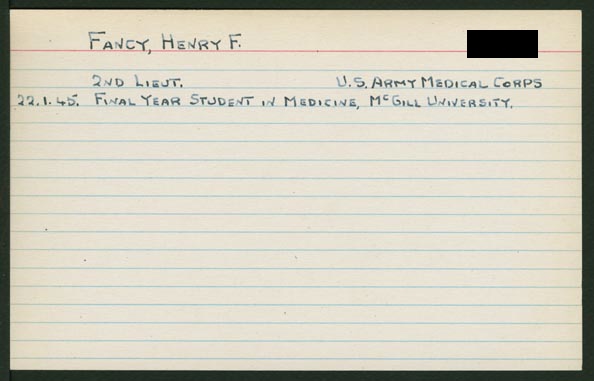 FANCY, HENRY F.
2ND LIEUT. U.S. ARMY MEDICAL CORPS
22.1.45. FINAL YEAR STUDENT IN MEDICINE, McGILL UNIVERSITY.